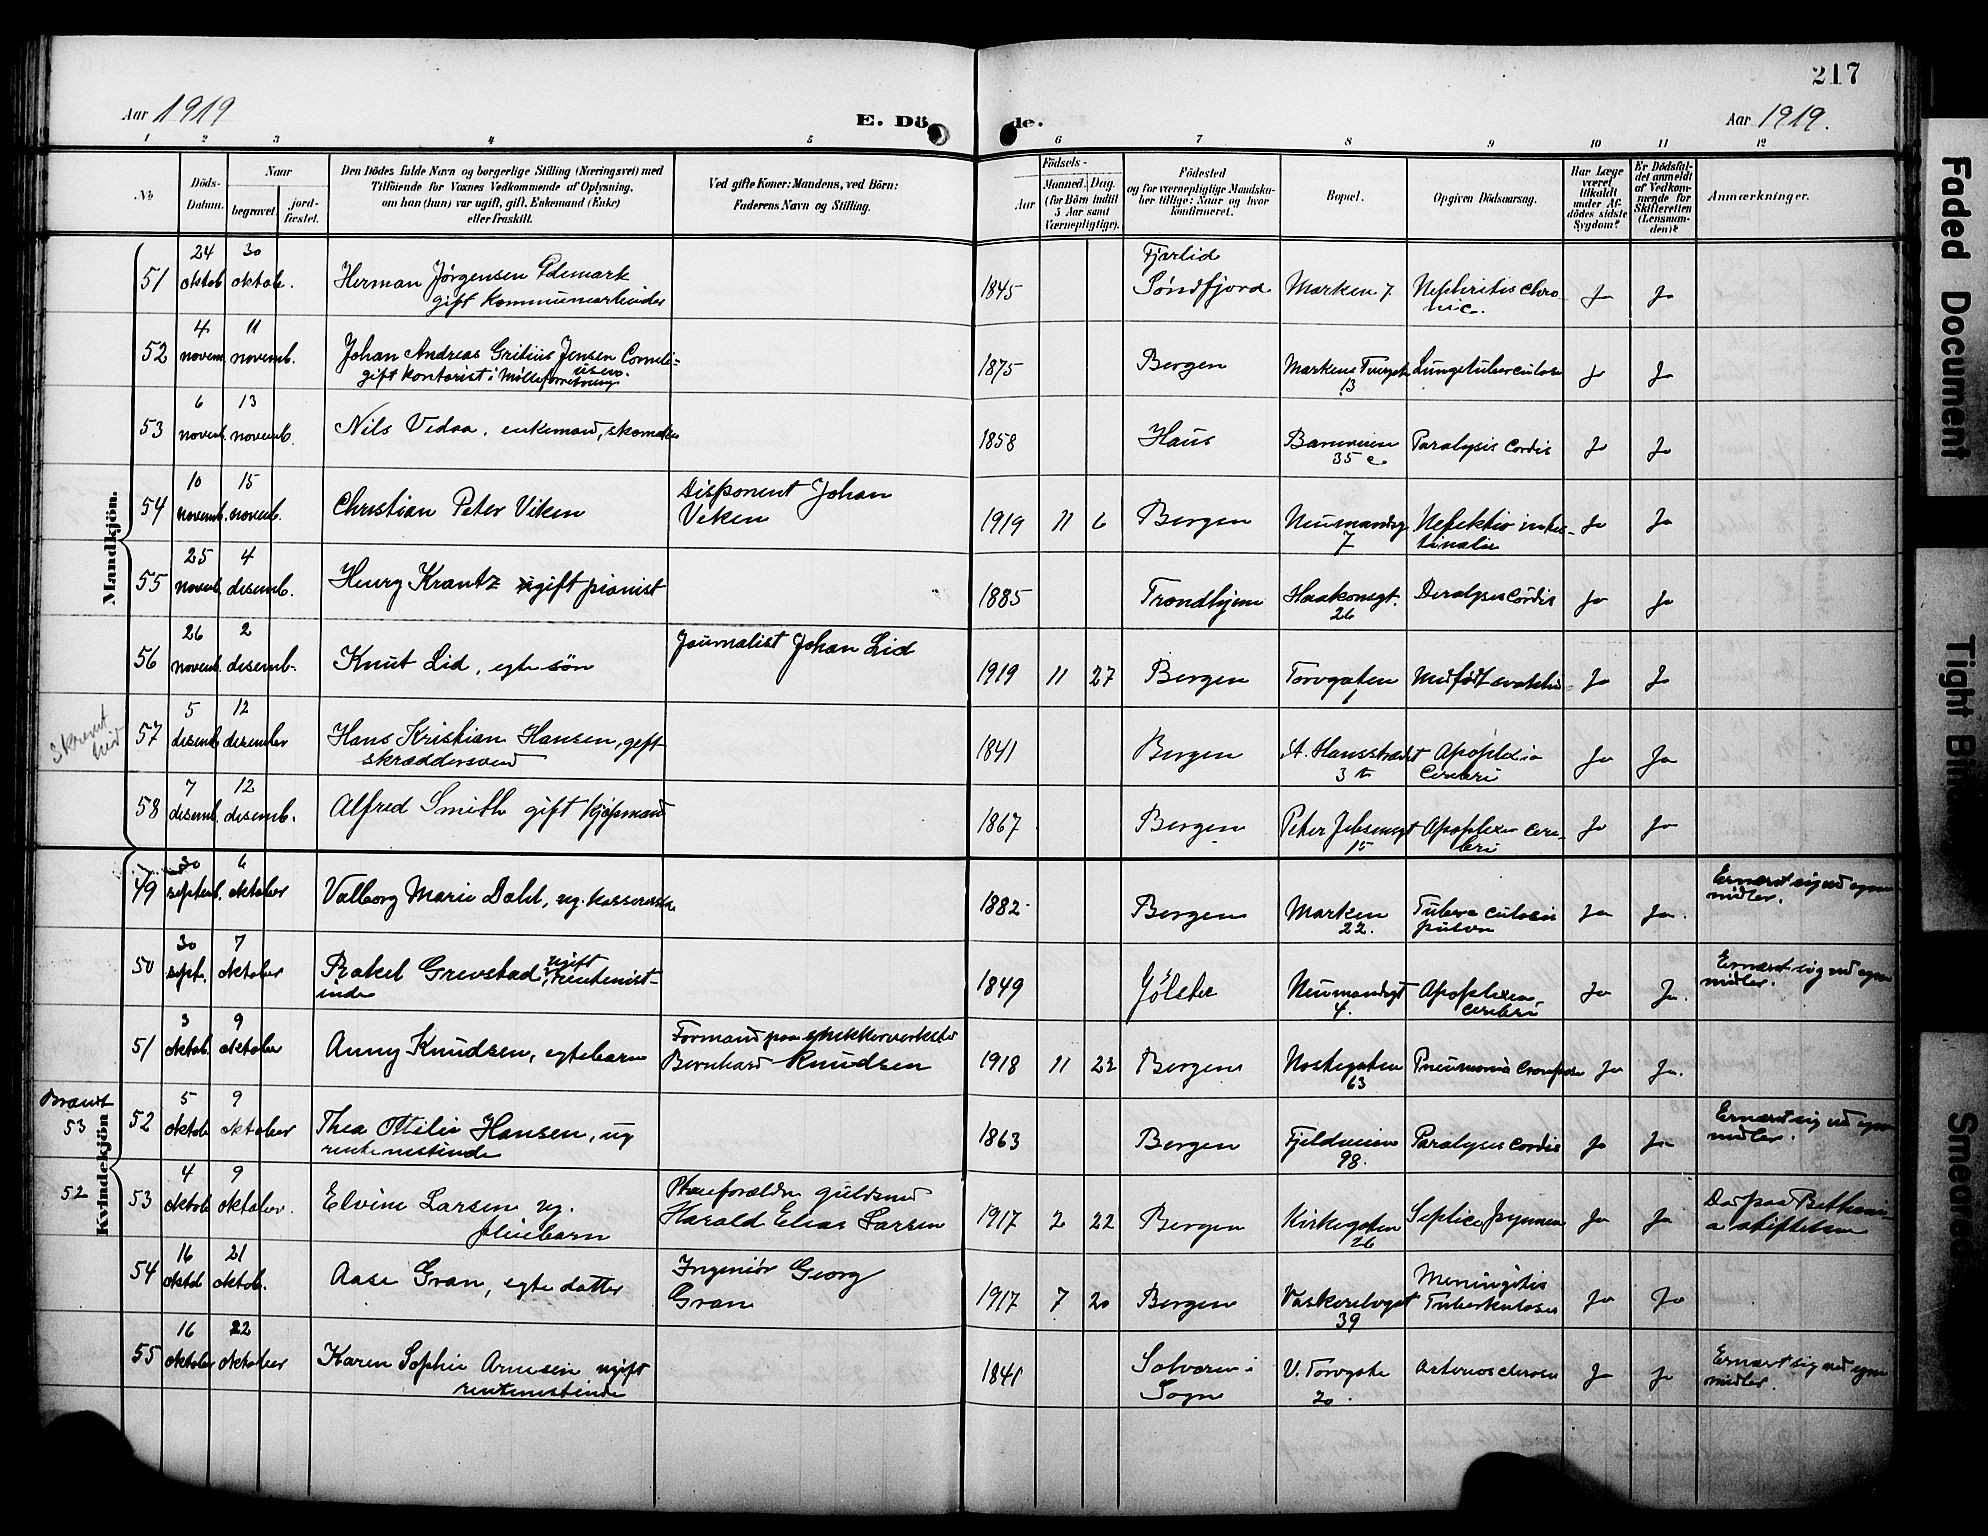 217
Aar 1919
E. Döde.
Aar 1919.
1 2 3 4 5 6 7 8 9 10 11 12
No
Döds-Datum.
Naar
begravet.
jord-fæstet.
Den Dödes fulde Navn og borgerlige Stilling (Næringsvei) med
Tilföiende for Voxnes Vedkommende af Oplysning,
om han (hun) var ugift, gift, Enkemand (Enke)
eller fraskilt.
Ved gifte Koner: Mandens, ved Börn:
Faderens Navn og Stilling.
Födsels-
Aar
Maaned. Dag.
(for Börn indtil
5 Aar samt
Værnepligtige).
Födested
og for værnepligtige Mandska-
ber tillige: Naar og hvor
konfirmeret.
Bopæl.
Opgiven Dödsaarsag.
Har Læge
været
tilkaldt
under Af-
dödes sidste
Sygdom?
Er Dödsfal-
det anmeldt
af Vedkom-
mende for
Skifteretten
(Lensman-
den)?
Anmærkninger.
Mandkjön.
51 24 oktob. 30 oktob. Herman Jørgensen
gift kommunearbeider
1845 Søndfjord Marken 7. Nephritis chro-
nic. Ja Ja
52 4 novem. 11 novemb. Johan Andreas Jensen Corneli-
usen.
gift kontorist i Mølleforretning
1875 Bergen Markens Tvergt.
13 Lungetuberculose Ja Ja
53 6 novemb. 13 novemb. Nils Vedaa, enkemand, skomaker
1858 Haus
35 c Paralysis Cordis Ja Ja
54 10 novemb. 15 novemb. Christian Peter Viken
Disponent Johan
Viken
1919 11 6 Bergen Neumandsg
7 Ja Ja
55 25 novemb. 4 desemb. Henry Krantz ugift pianist
1885 Trondhjem Haakonsgt.
26 Paralysis Cordis Ja Ja
56 26 novemb. 2 desemb. Knut Lid, egte søn
Journalist Johan Lid
1919 11 27 Bergen Torvgaten
6 Medfødt svakhet Ja Ja
57 5 desemb. 12 desember Hans Kristian Hansen, gift
skræddersvend
1841 Bergen St. Hansstrædet
3 Apoplexia
Cerebri Ja Ja
58 7 desemb. 12 desemb. Alfred Smith gift kjøpmand
1867 Bergen Peter Jebsensgt
15 Apoplexia cere-
bri Ja Ja
Kvindekjön
49 30 septemb. 6 oktober Valborg Marie Dahl, ug. kassererske
1882 Bergen Marken
22. Tuberculosis
pulm Ja Ja. Ernært sig ved egne
midler.
50 30 sept. 7 oktober Rakel Grevstad, ugift rentenist-
inde
1849 Jølster Neumandsgt
4. Apoplexia
Cerebri Ja Ja. Ernært sig ved egne
midler.
51 3 oktob. 9 oktober Anny Knudsen, egtebarn
Formand paa snekkerverksted
Bernhard Knudsen
1918 11 23 Bergen Nostegaten
63 Pneumonia Crouposa Ja Ja.
Brændt
53
52 5 oktob 9 oktober Thea Ottilie Hansen, ug
rentenistinde
1863 Bergen Fjeldveien
98. Paralysis Cordis Ja Ja Ernært sig ved egne
midler.
52
53 4 oktob 9 oktober. Elvine Larsen ug.
pleiebarn
Pleieforældre guldsmed
Harald Elias Larsen
1917 2 22 Bergen Kirkegaten
26 Ja Ja Død paa Bethani-
a stiftelsen
54 16 oktob 21 oktob. Aase Gran, egte datter
Ingeniør Georg
Gran
1917 7 20 Bergen Vaskerelvsgt
39 Meningitis
Tuberkulosis Ja Ja
55 16 oktober 22 oktober Karen Sophie Arnesen ugift
rentenistinde
1841 Solvoren i
Sogn V. Torvgate
20. Arteriosclerose Ja Ja Ernært sig ved egne
midler.
Faded Document
Tight Binding
Smeared